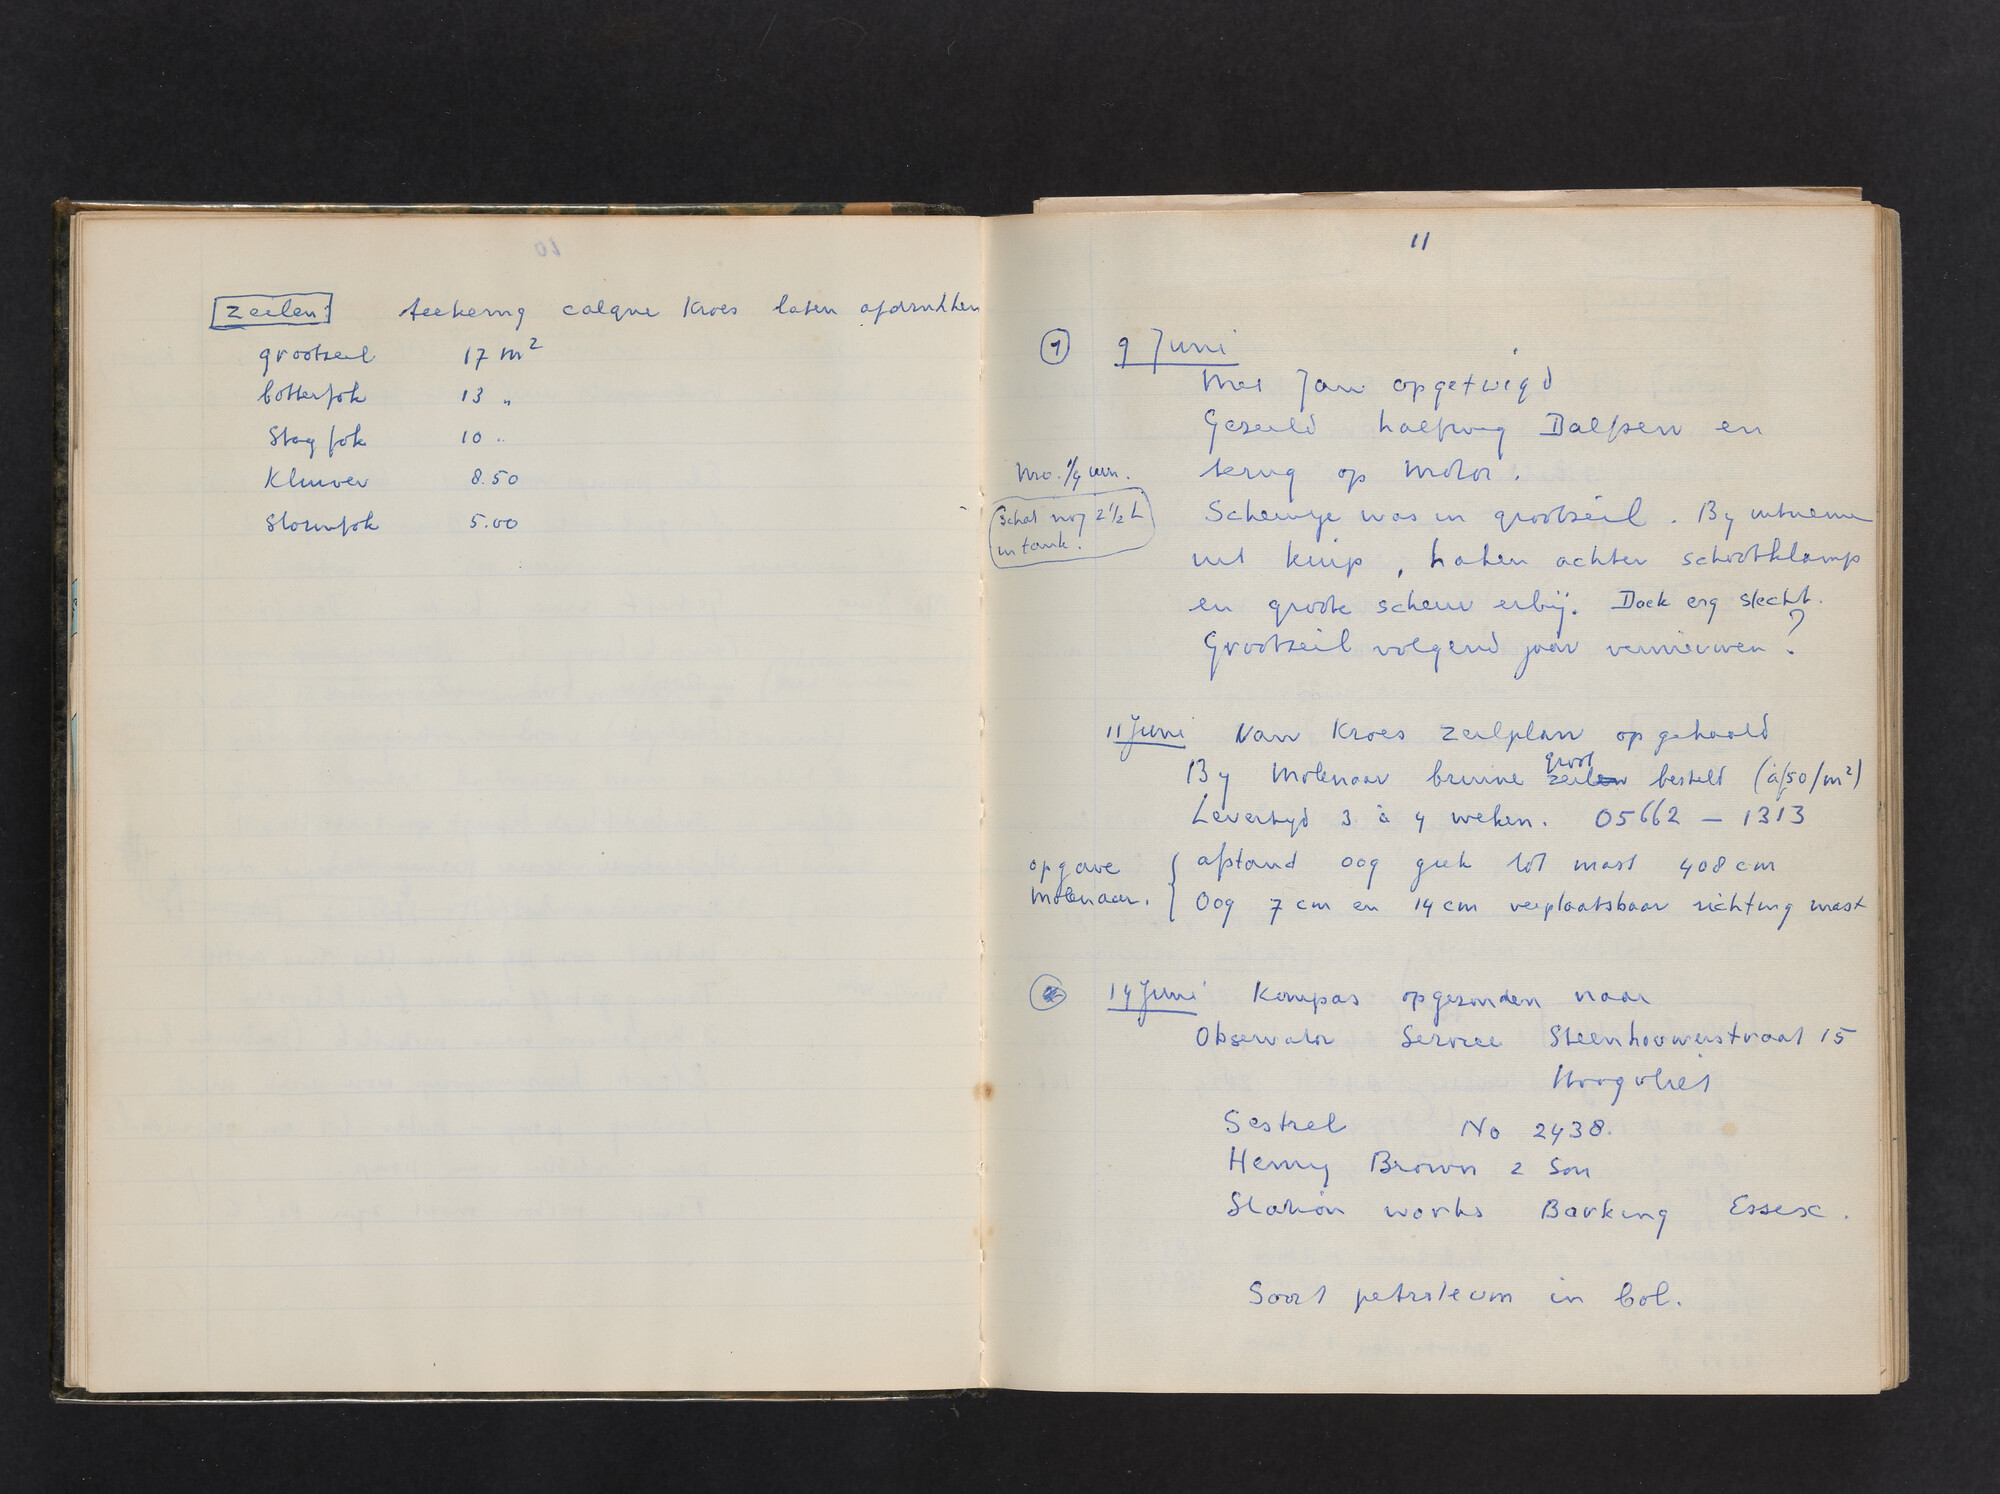 Zeilen: teekening calque Kroes laten afdrukken
grootzeil 17 m²
botterfok 13 „
Stagfok 10 „
Kluiver 8.50
Stormfok 5.00
11
① 9 Juni
Met Jan opgetuigd
Gezeild halfweg Dalfsen en
terug op motor.
Mo. ¼ uur.
Schat nog 2½ L
in tank.
Scheurtje was in grootzeil. By uitnemen
uit kuip, haken achter schootklamp
en groote scheur erbij. Doek erg slecht.
Grootzeil volgend jaar vernieuwen?
11 Juni Van Kroes zeilplan opgehaald
By Molenaar bruine grootzeil besteld (à ƒ50/m²)
Levertyd 3 à 4 weken. 05662 – 1313
opgave
Molenaar.
afstand oog giek tot mast 408 cm
Oog 7 cm en 14 cm verplaatsbaar richting mast
14 Juni Kompas opgezonden naar
Observator Service Steenhouwerstraat 15
Hoogvliet
Sestrel No 2438.
Henry Brown & Son
Station works Barking Essex.
Soort petroleum in bol.